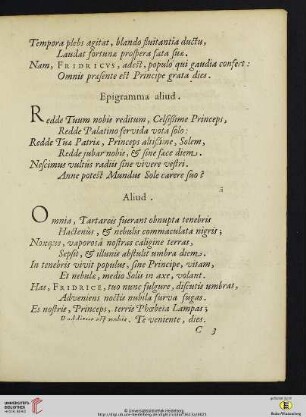 Tempora plebs agitat, blando fluitantia ductu,
Laudat fortunæ prospera fata suæ.
Nam, FRIDRICVS, adest, populo qui gaudia confert:
Omnis præsente est Principe grata dies.
Epigramma aliud.
Redde Tuum nobis reditum, Celsissime Princeps,
Redde Palatino fervida vota solo:
Redde Tuæ Patriæ, Princeps altissime, Solem,
Redde jubar nobis, & sine face diem.
Nescimus vultus radiis sine vivere vestri.
Anne potest Mundus Sole carere suo?
Aliud.
Omnia, Tartareis fuerant obnupta tenebris
Hactenus, & nebulis commaculata nigris;
vaporosâ nostras caligine terras,
Sepsit, & illunis abstulit umbra diem.
In tenebris vivit populus, sine Principe, vitam,
Et nebulæ, medio Solis in axe, volant.
Has, FRIDRICE, tuo nunc fulgure, discutis umbras,
Adveniens noctis nubila furva fugas.
Es nostris, Princeps, terris Phœbeia Lampas;
est nobis. Te veniente, dies.
C 3
UNIVERSITÄTS-
BIBLIOTHEK
HEIDELBERG
© Universitätsbibliothek Heidelberg